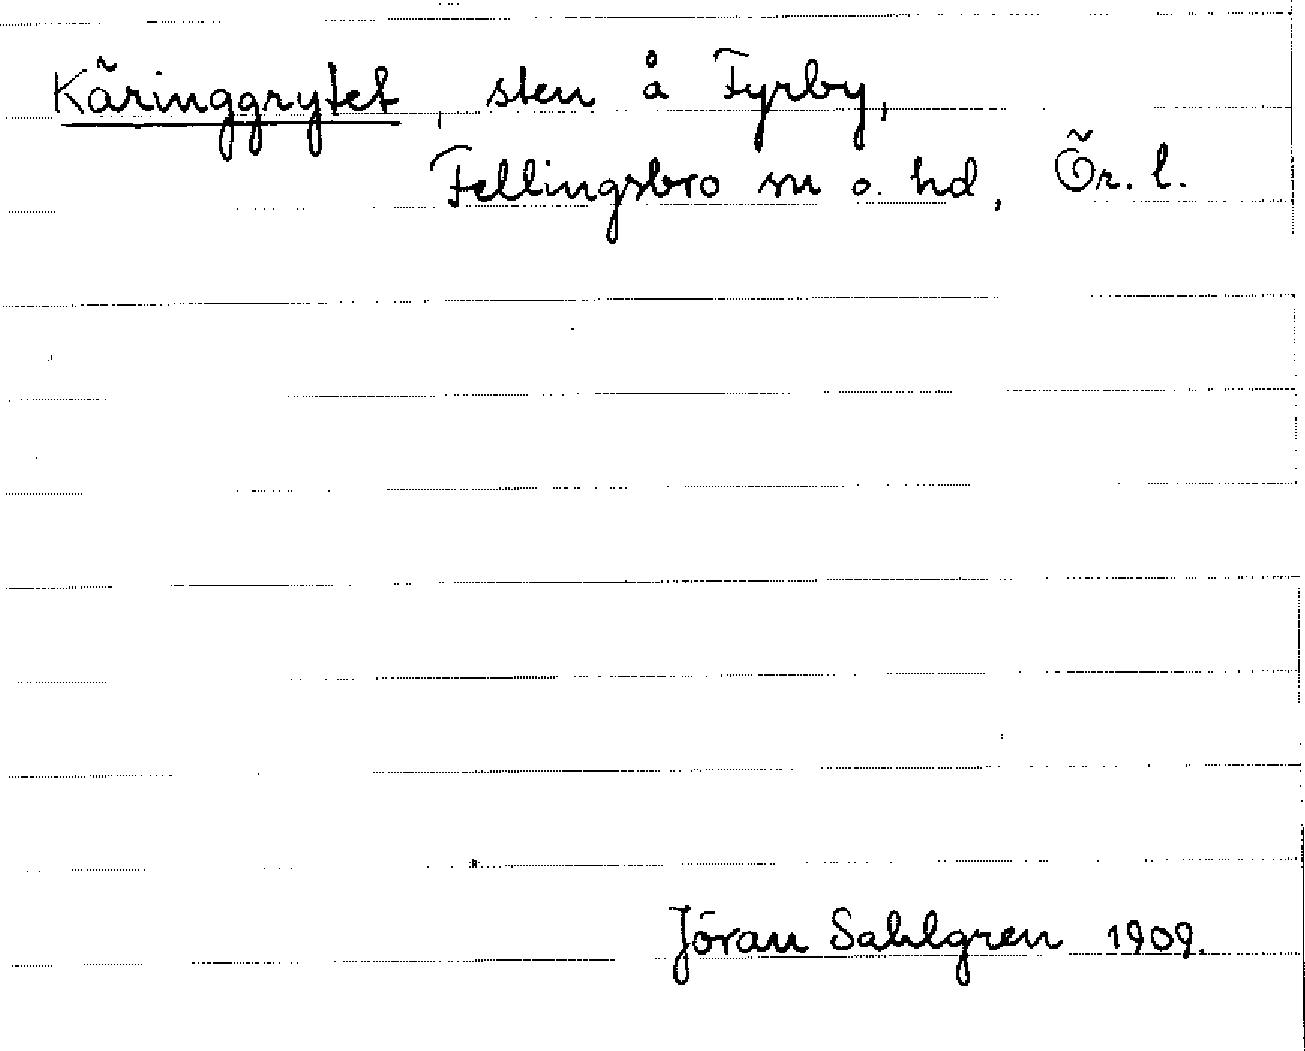 Käringgrytet, sten å Fyrby,
Fellingsbro sn o. hd, Ör. l.
Jöran Sahlgren 1909.